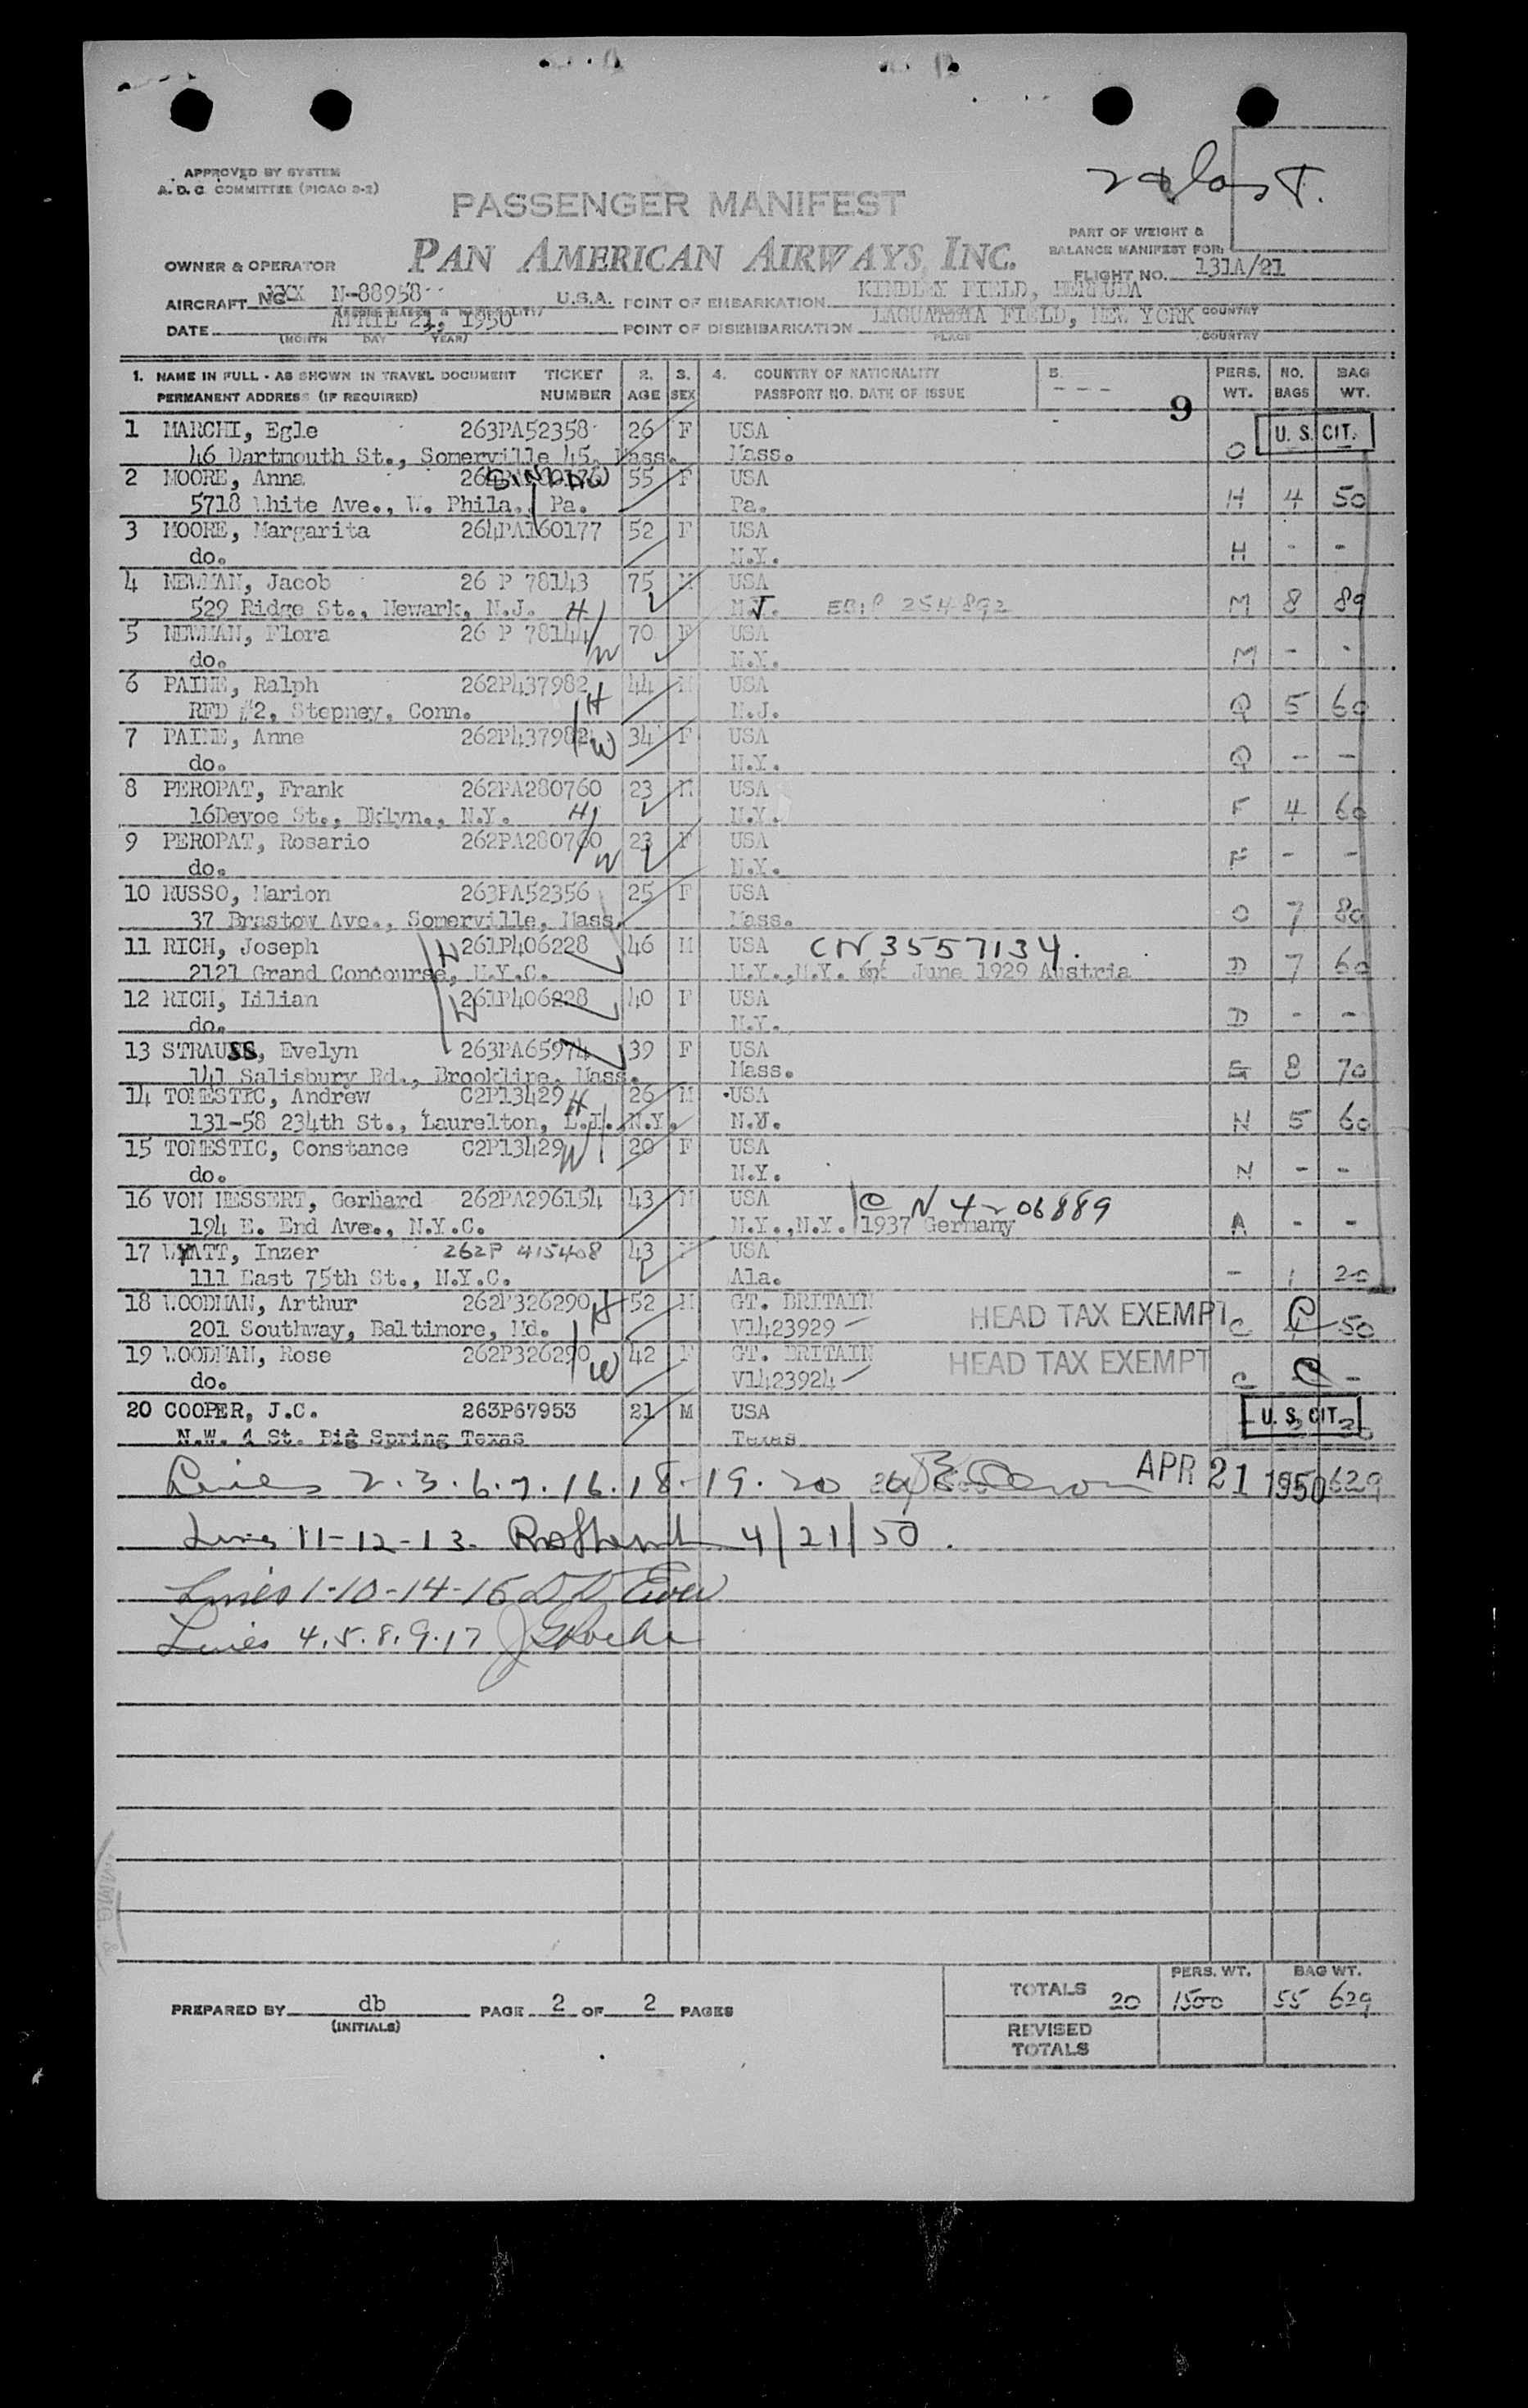 APPROVED BY SYSTEM
A. D. C. COMMITTEE (PICAO 2-2)
PASSENGER MANIFEST
PART OF WEIGHT &
BALANCE MANIFEST FOR:
OWNER & OPERATOR PAN AMERICAN AIRWAYS, INC.
FLIGHT NO. 131A/21
AIRCRAFT NC XXX N-88958 U.S.A. POINT OF EMBARKATION KINDLEY FIELD, BERMUDA
COUNTRY
DATE APRIL 21, 1950 POINT OF DISEMBARKATION LAGUARDIA FIELD, NEW YORK
(MONTH DAY YEAR) PLACE COUNTRY
1. NAME IN FULL - AS SHOWN IN TRAVEL DOCUMENT TICKET 2. 3. 4. COUNTRY OF NATIONALITY 5. PERS. NO. BAG
PERMANENT ADDRESS (IF REQUIRED) NUMBER AGE SEX PASSPORT NO. DATE OF ISSUE - - - WT. BAGS WT.
9
1 MARCHI, Egle 263PA52358 26 F USA U. S. CIT.
46 Dartmouth St., Somerville 45, Mass. Mass. O - -
2 MOORE, Anna 55 F USA
5718 White Ave., W. Phila., Pa. Pa. H 4 50
3 MOORE, Margarita 264PA160177 52 F USA
do. N.Y. H - -
4 NEWMAN, Jacob 26 P 78143 75 M USA
529 Ridge St., Newark, N.J. H N.J. 254892 M 8 89
5 NEWMAN, Flora 26 P 78144 70 F USA
do. W N.Y. M - -
6 PAINE, Ralph 262P437982 44 M USA
RFD #2, Stepney, Conn. H N.J. Q 5 60
7 PAINE, Anne 262P437982 34 F USA
do. W N.Y. Q - -
8 PEROPAT, Frank 262PA280760 23 M USA
16Devoe St., Bklyn., N.Y. H N.Y. F 4 60
9 PEROPAT, Rosario 262PA280760 23 F USA
do. W N.Y. F - -
10 RUSSO, Marion 263PA52356 25 F USA
37 Brastow Ave., Somerville, Mass. Mass. O 7 80
11 RICH, Joseph H 261P406228 46 M USA CN 3557134.
2121 Grand Concourse, N.Y.C. N.Y.,N.Y. June 1929 Austria D 7 60
12 RICH, Lilian W 261P406228 40 F USA
do. N.Y. D - -
13 STRAUSS, Evelyn 263PA65974 39 F USA
141 Salisbury Rd., Brookline, Mass. Mass. G 8 70
14 TOMESTIC, Andrew C2P13429 H 26 M USA
131-58 234th St., Laurelton, L.I., N.Y. N.J. N 5 60
15 TOMESTIC, Constance C2P13429 W 20 F USA
do. N.Y. N - -
16 VON HESSERT, Gerhard 262PA296154 43 M USA C N 4206889
194 E. End Ave., N.Y.C. N.Y.,N.Y. 1937 Germany A - -
17 WYATT, Inzer 262P 415408 43 USA
111 East 75th St., N.Y.C. Ala. - 1 20
18 WOODMAN, Arthur 262P326290 H 52 M GT. BRITAIN HEAD TAX EXEMPT
201 Southway, Baltimore, Md. V1423929 C 50
19 WOODMAN, Rose 262P326290 W 42 F GT. BRITAIN HEAD TAX EXEMPT
do. V1423924 C -
20 COOPER, J.C. 263P67953 21 M USA U. S. CIT.
N.W. 4 St. Big Spring Texas Texas
Lines 2.3.6.7.16.18.19.20 APR 21 1950 629
Lines 11-12-13 4/21/50.
Lines 1-10-14-15
Lines 4.5.8.9.17
PREPARED BY db PAGE 2 OF 2 PAGES
(INITIALS)
PERS. WT. BAG WT.
TOTALS 20 1500 55 629
REVISED
TOTALS